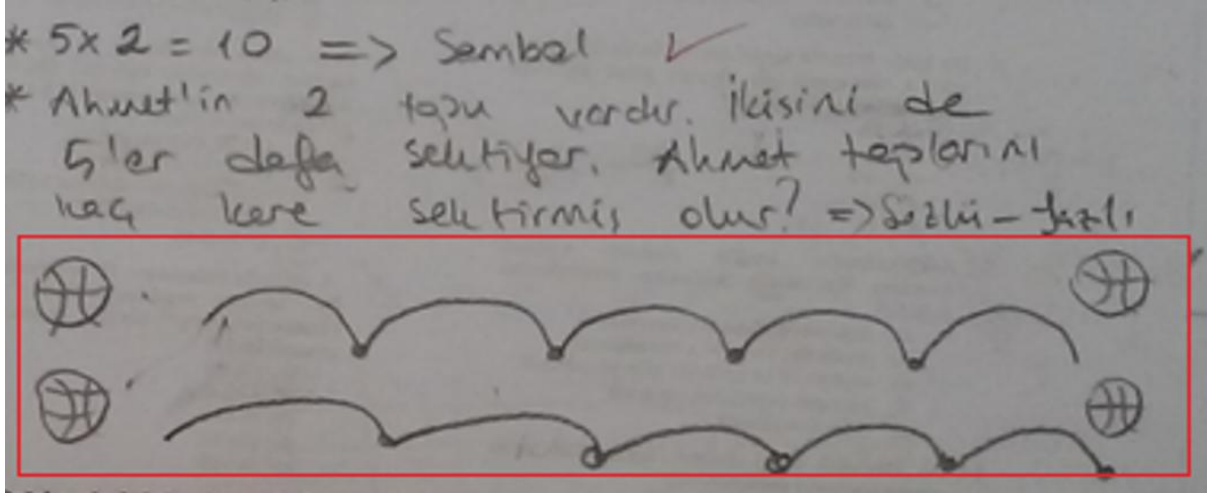 * 5x2 = 10 => Sembol ✓
* Ahmet'in 2 topu vardır. İkisini de
5'er defa sektiyor. Ahmet toplarını
kaç kere sektirmiş olur? => Sözlü - Yazılı